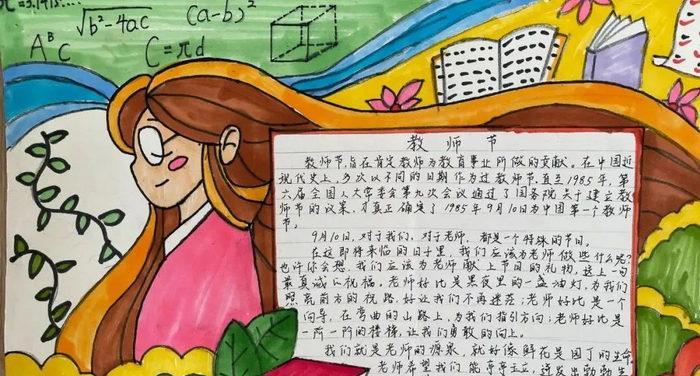 =3.1415....
√b²-4ac
(a-b)²
A^B C
C=πd
教师节
教师节,旨在肯定教师为教育事业所做的文献。在中国近
现代史上,多次以不同的日期作为过教师节。直至1985年,第
六届全国人大常委会第九次会议通过了国务院关于建立教
师节的议案,才真正确定了1985年9月10日为中国第一个教师
节。
9月10日,对于我们,对于老师,都是一个特殊的节日。
在这即将来临的日子里,我们应该为老师做些什么呢?
也许你会想,我们应该为老师献上节日的礼物,送上一句
最真诚的祝福。老师好比是黑夜里的一盏油灯,为我们
照亮前方的路,好让我们不再迷茫;老师好比是一个
向导,在弯曲的山路上,为我们指引方向;老师好比是
一所一所的楼梯,让我们勇敢的向上。
我们就是老师的源泉,就好像鲜花是园丁的生命
老师希望我们能亭亭玉立,迸发出勃勃生